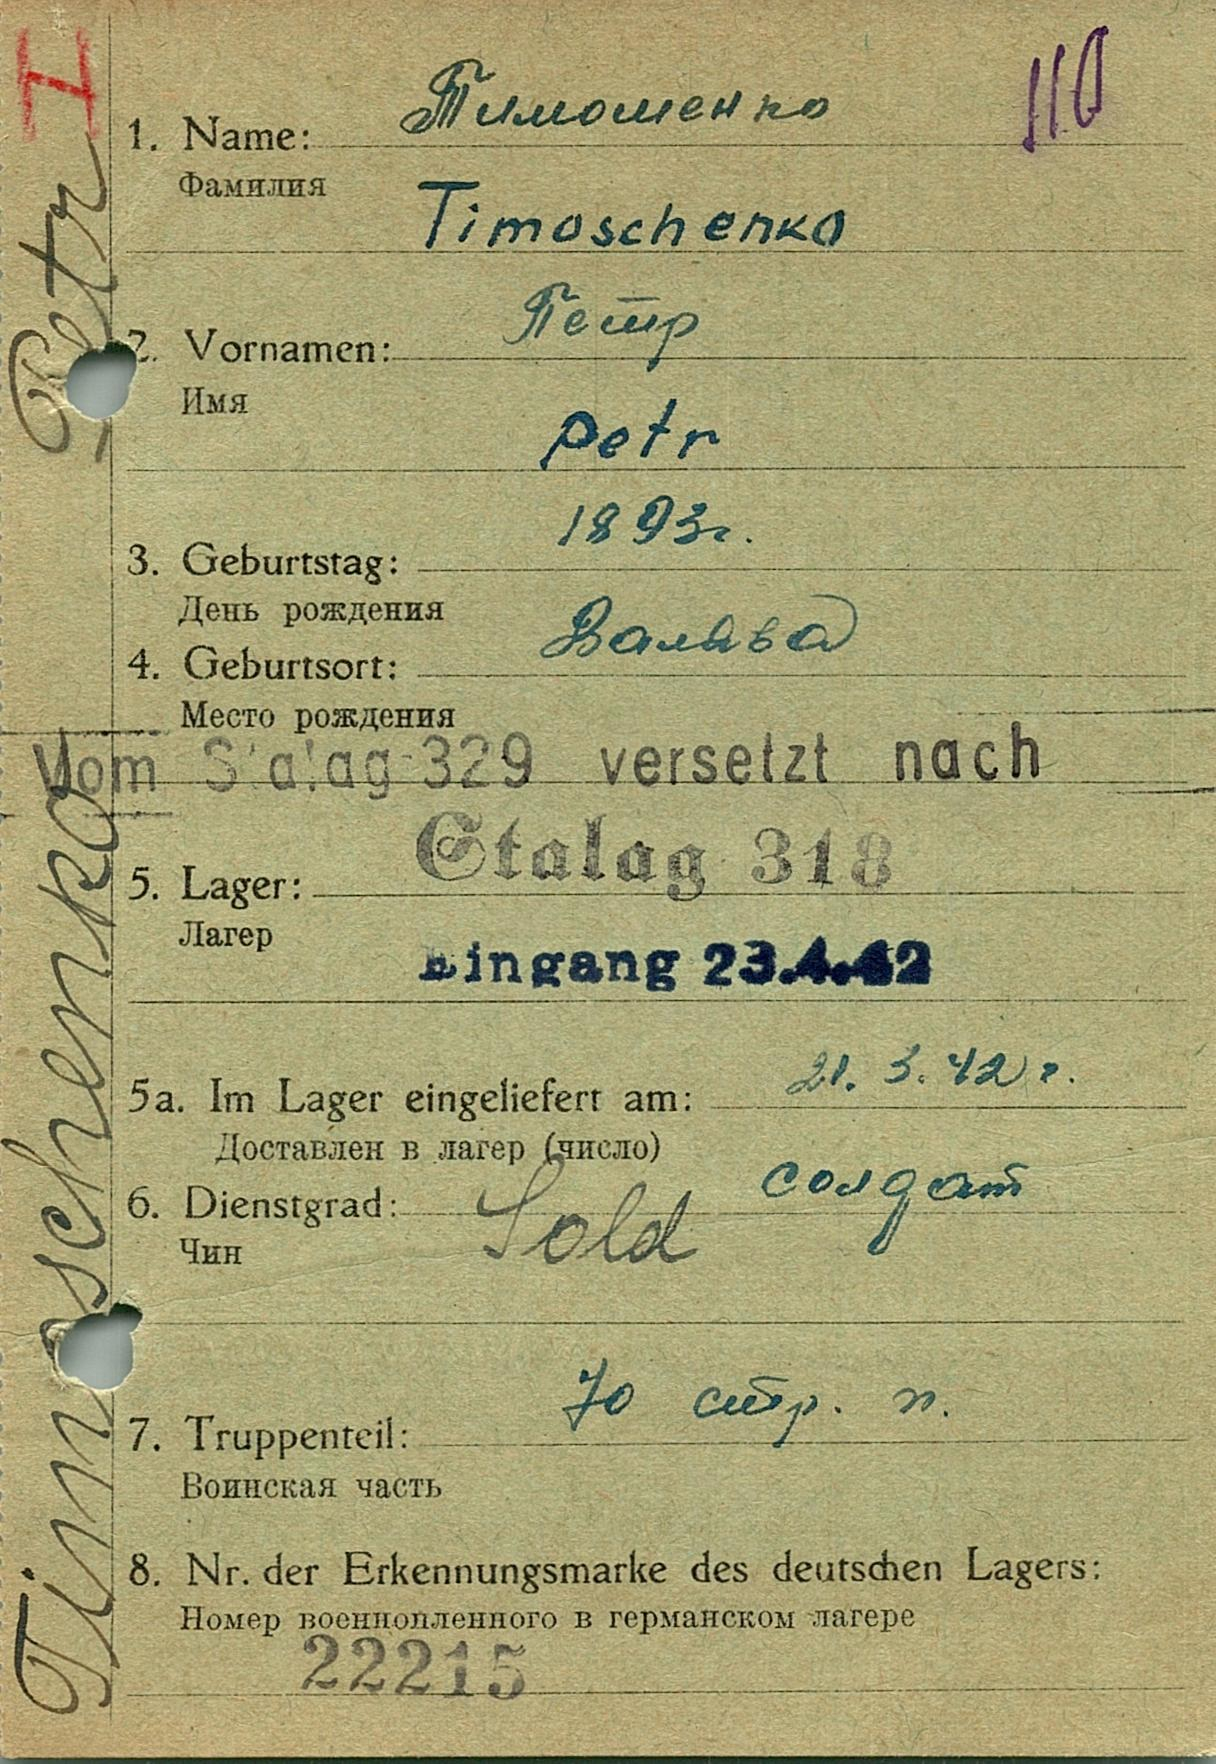 I
110
Тимошенко
1. Name:
Фамилия
Timoschenko
Петр
2. Vornamen:
Имя
Petr
1893г.
3. Geburtstag:
День рождения
4. Geburtsort:
Место рождения
Vom Stalag 329 versetzt nach
Stalag 318
5. Lager:
Лагер
Eingang 23.4.42
5a. Im Lager eingeliefert am: 21. 3. 42 г.
Доставлен в лагер (число)
солдат
6. Dienstgrad: Sold
Чин
70 стр. п.
7. Truppenteil:
Воинская часть
8. Nr. der Erkennungsmarke des deutschen Lagers:
Номер военнопленного в германском лагере
22215
Timoschenko Petr